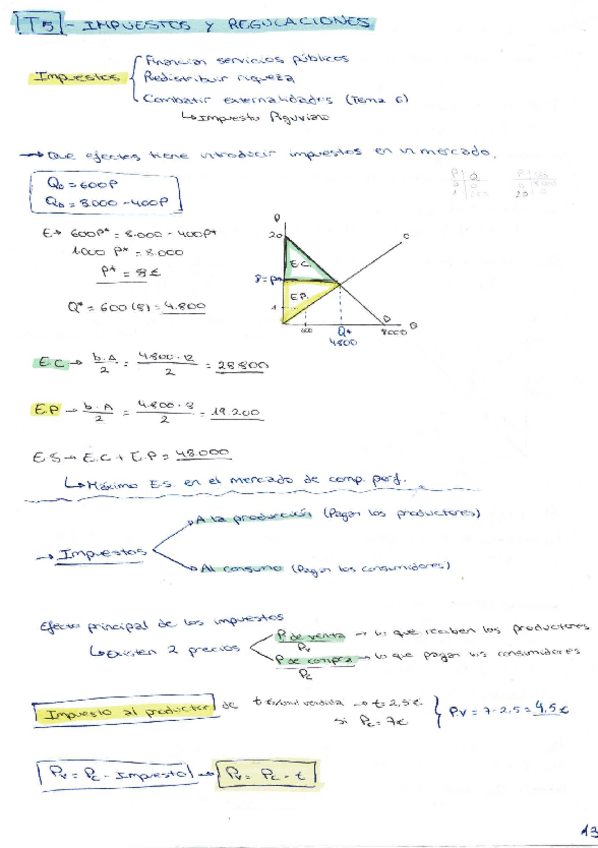 T5 - IMPUESTOS Y REGULACIONES
Impuestos
Financian servicios públicos
Redistribuir riqueza
Combatir externalidades (Tema 6)
↳ Impuesto Piguviano
→ Que efectos tiene introducir impuestos en un mercado.
Qo = 600P
QD = 8000 - 400P
E→ 600P* = 8.000 - 400P*
1000 P* = 8.000
P* = 8€
Q* = 600 (8) = 4.800
P
20
O
E.C.
8 = P*
E.P.
1
600
Q*
4800
D
8000
Q
E.C → b.A/2 = 4.800.12/2 = 28.800
E.P → b.A/2 = 4.800.8/2 = 19.200
E.S → E.C + E.P = 48.000
↳ Máximo E.S. en el mercado de comp. perf.
→ Impuestos
A la producción (Pagan los productores)
Al consumo (Pagan los consumidores)
Efecto principal de los impuestos
↳ Existen 2 precios
P de venta → lo que reciben los productores
Pv
P de compra → lo que pagan los consumidores
Pc
Impuesto al productor de t → t = 2,5€
si Pc = 7€
P.V = 7 - 2.5 = 4,5€
Pv = Pc - Impuesto → Pv = Pc - t
13